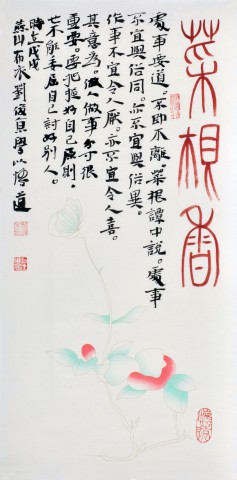 菜根香
處事要道。不即不離。菜根譚中說。處事
不宜與俗同。亦不宜與俗異。
作事不宜令人厭。亦不宜令人喜。
其意為。做事分寸很
重要。要把握好自己原則。
也不能委屈自己討好別人。
時在戊戌
燕山布衣劉俊良學以博道